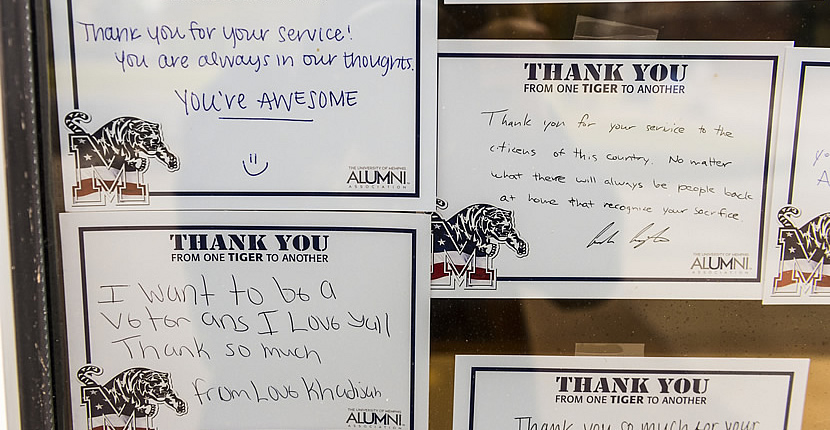 Thank you for your service!
You are always in our thoughts.
You're AWESOME
THE UNIVERSITY OF MEMPHIS
ALUMNI
ASSOCIATION
THANK YOU
FROM ONE TIGER TO ANOTHER
Thank you for your service to the
citizens of this country. No matter
what there will always be people back
at home that recognize your sacrifice.
THE UNIVERSITY OF MEMPHIS
ALUMNI
ASSOCIATION
THANK YOU
FROM ONE TIGER TO ANOTHER
I want to be a
Voter ans I Love yall
Thank so much
from Love Khadijah
THE UNIVERSITY OF MEMPHIS
ALUMNI
ASSOCIATION
THANK YOU
FROM ONE TIGER TO ANOTHER
Thank you so much for your